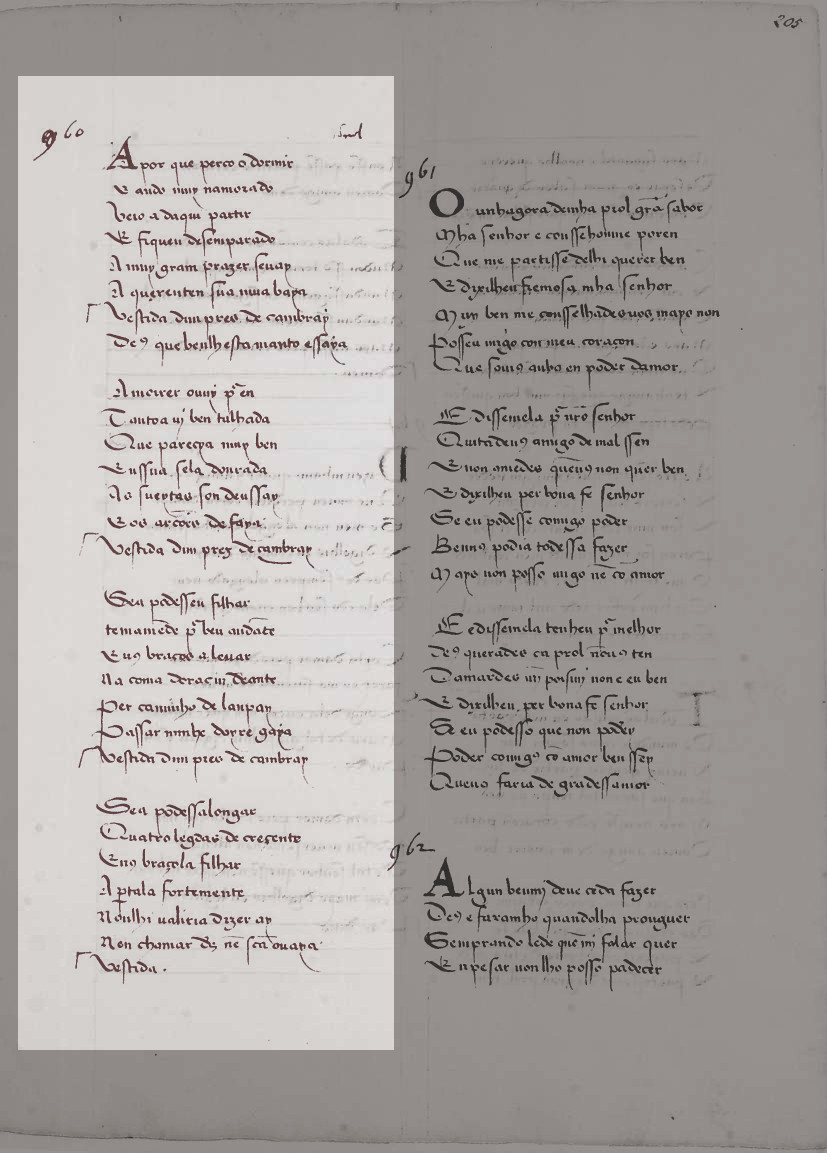 205
960
A por que perco o dormir
E ando muy namorado
Veio a daqui partir
E fiqueu desemparado
A muy gram prazer sevay
A querenten sua mua baya
Vestida dun pres de cambray
De9 que benlhesta manto essaya
A morrer ouuj p̃ en
Tantoa uj ben talhada
Que pareçya muy ben
Enssua sela dourada
As sueytas son deussay
E os arcões de faya
Vestida dun prez de cambray
Sea podesseu filhar
E nos braços a levar
Na coma doraçin deante
Per caminho de lanpay
Passar
Vestida dun pres de cambray
Sea podessalongar
Quatro legoas de creçente
E nos braçola filhar
A ꝑtala fortemente
Nõlhi ualiria dizer ay
Nen chamar d̃s nẽ sc̃a ouaya
Vestida.
961
O unhagora deinha prol grã sabor
Mha senhor e coussehomme poren
Que me partisse delhi querer ben
E dixilheu fremosa mha senhor
Muy ben me conselhades uos mays non
Posseu migo con meu coraçon
Que somꝰ anbꝰ en poder damor
E dissemela p̃ nr̃o senhor
Quitadeuꝰ amigo de mal ssen
E non amedes quenuꝰ non quer ben
E dixilheu per bona fe senhor
Se eu podesse comigo poder
Bennꝰ podia todessa fazer
Mays non posso migo nẽ cõ amor
E edissemela tenheu p̃ melhor
De9 querades ca prol nõuꝰ ten
Damardes mĩ poisimj non e eu ben
E dixilheu per bona fe senhor
Se eu podesso que non podey
Poder comigꝰ cõ amor ben ssey
Quenuꝰ faria de gradessamor
962
Algun benmj deue ceda fazer
De9 e faramho quandolha prouguer
Semprando lede quẽ mj falar quer
En pesar nonlho posso padecer